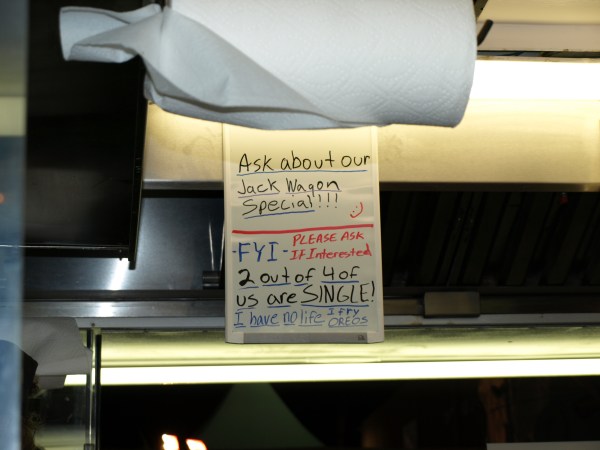 Ask about our
Jack Wagon
Special!!!
:)
-FYI- PLEASE ASK
IF Interested
2 out of 4 of
us are SINGLE!
I have no life I fry
OREOS